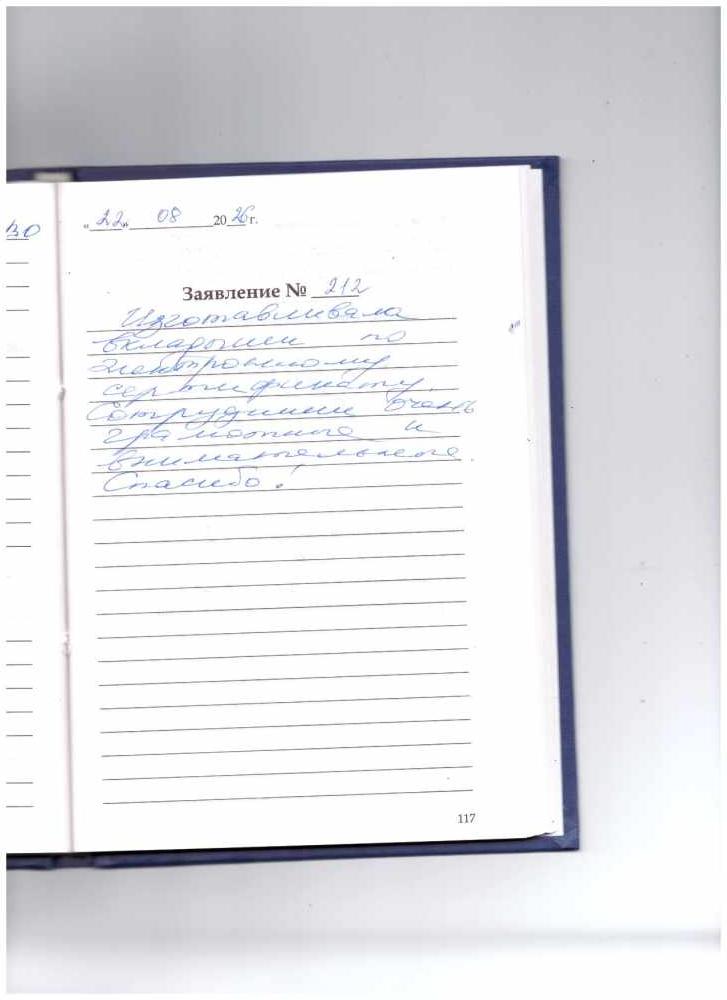 „22„ 08 2026 г.
Заявление № 212
Изготавливала
вкладыши по
электронному
сертификату.
Сотрудники очень
грамотные и
внимательные.
Спасибо!
117